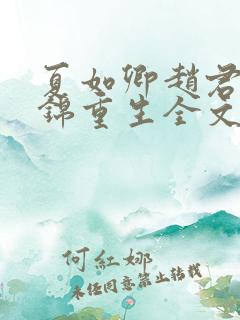 夏如卿趙君
錦重生全文
何紅娜
未经同意禁止转载